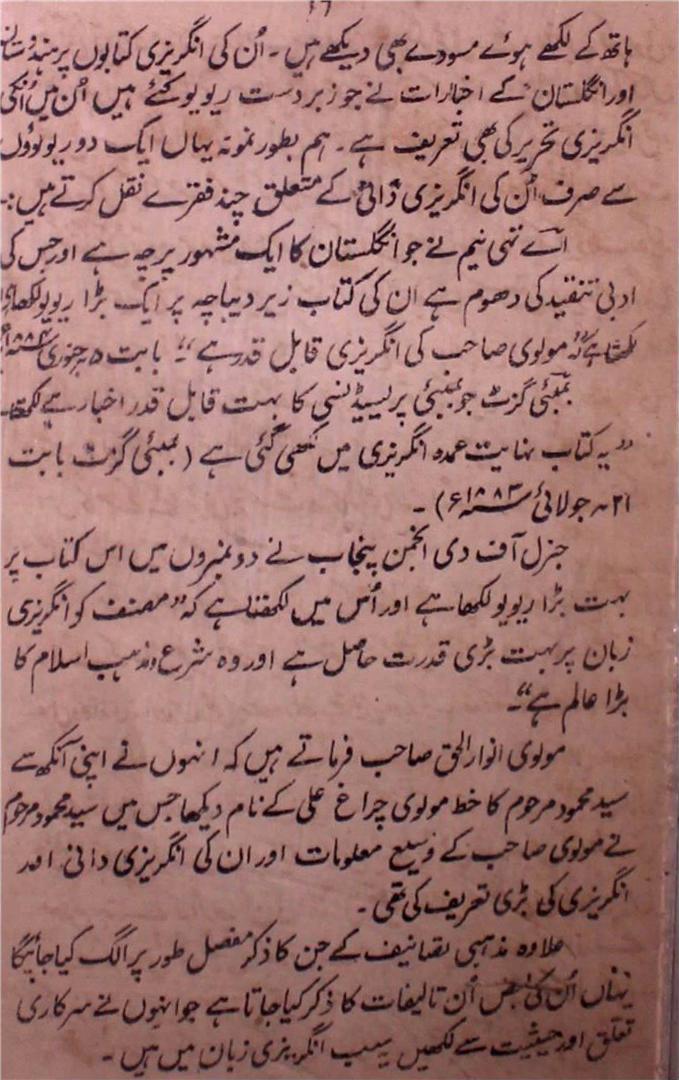 ۱۶
ہاتھ کے لکھے ہوئے مسودے بھی دیکھے ہیں۔ اُن کی انگریزی کتابوں پر ہندوستان
اور انگلستان کے اخبارات نے جو زبردست ریویو کئے ہیں اُن میں اُنکی
انگریزی تحریر کی بھی تعریف ہے۔ ہم بطور نمونہ یہاں ایک دو ریویوؤں
سے صرف اُن کی انگریزی دانی کے متعلق چند فقرے نقل کرتے ہیں:۔
اے تھی نیم نے جو انگلستان کا ایک مشہور پرچہ ہے اور جس کی
ادبی تنقید کی دھوم ہے ان کی کتاب زیر دیباچہ پر ایک بڑا ریویو لکھا
لکھتا ہے کہ "مولوی صاحب کی انگریزی قابل قدر ہے"۔ بابت ۵؍ جنوری ۱۸۸۴ء
بمبئی گزٹ جو بمبئی پریسیڈنسی کا بہت قابل قدر اخبار ہے لکھتا
"یہ کتاب نہایت عمدہ انگریزی میں لکھی گئی ہے (بمبئی گزٹ بابت
۲۱؍ جولائی ۱۸۸۳ء)۔
جنرل آف دی انجمن پنجاب نے دو نمبروں میں اس کتاب پر
بہت بڑا ریویو لکھا ہے اور اُس میں لکھتا ہے کہ "مصنف کو انگریزی
زبان پر بہت بڑی قدرت حاصل ہے اور وہ شرع و مذہب اسلام کا
بڑا عالم ہے"۔
مولوی انوار الحق صاحب فرماتے ہیں کہ انہوں نے اپنی آنکھ سے
سید محمود مرحوم کا خط مولوی چراغ علی کے نام دیکھا جس میں سید محمود مرحوم
نے مولوی صاحب کے وسیع معلومات اور ان کی انگریزی دانی اور
انگریزی کی بڑی تعریف کی تھی۔
علاوہ مذہبی تصانیف کے جن کا ذکر مفصل طور پر الگ کیا جائیگا
یہاں اُن کی بعض اُن تالیفات کا ذکر کیا جاتا ہے جو انہوں نے سرکاری
تعلق اور حیثیت سے لکھیں یہ سب انگریزی زبان میں ہیں۔